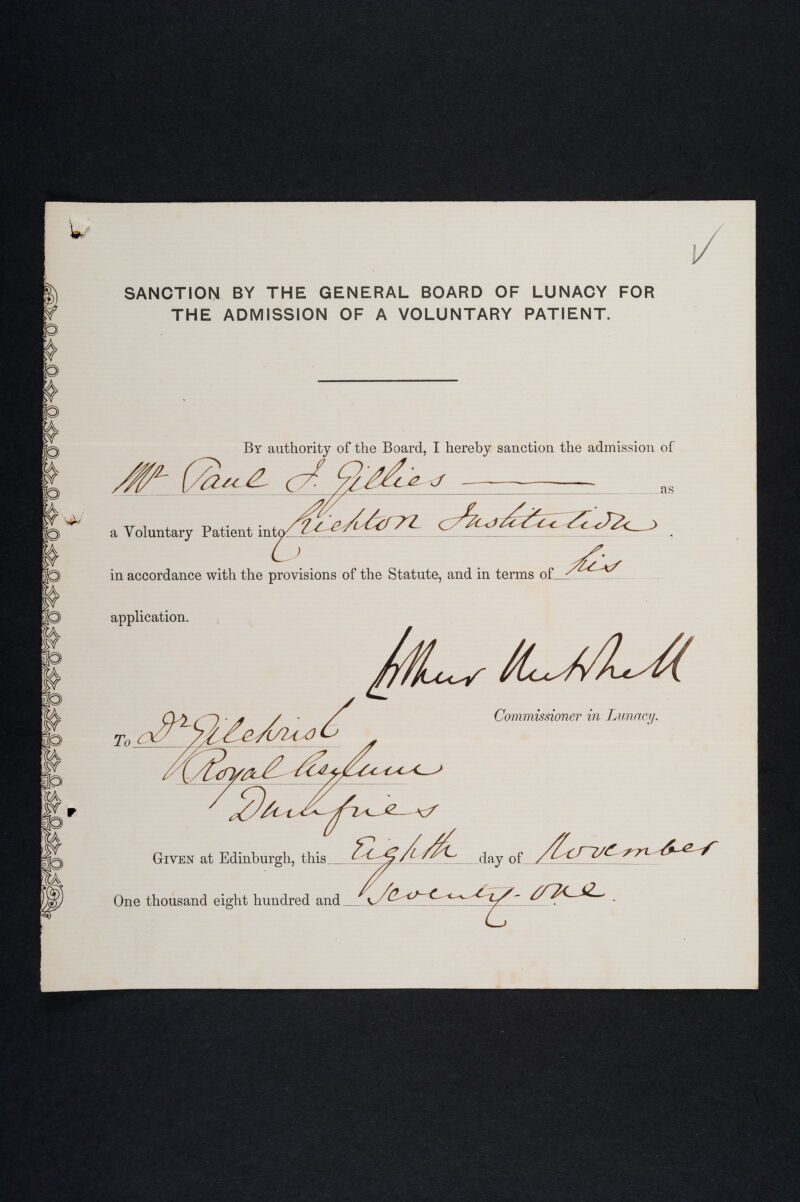 SANCTION BY THE GENERAL BOARD OF LUNACY FOR
THE ADMISSION OF A VOLUNTARY PATIENT.
By authority of the Board, I hereby sanction the admission of
Mr Paul J. Gillies as
a Voluntary Patient into Crichton Institution.
in accordance with the provisions of the Statute, and in terms of his
application.
Arthur Mitchell
Commissioner in Lunacy.
To Dr Gilchrist
Royal Asylum
Dumfries
Given at Edinburgh, this Eighth day of November
One thousand eight hundred and Seventy-one.